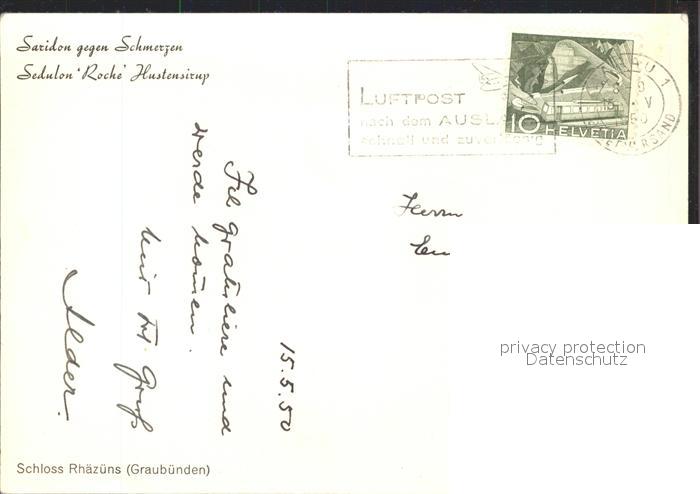 Saridon gegen Schmerzen
Sedulon 'Roche' Hustensirup
LUFTPOST
nach dem AUSLA
schnell und zuverlässig
10 HELVETIA
AU 1
15. V
50
VERSAND
15.5.50
Ich gratuliere und
werde kommen.
Mit frd. Gruß
Alder.
Herrn
privacy protection
Datenschutz
Schloss Rhäzüns (Graubünden)